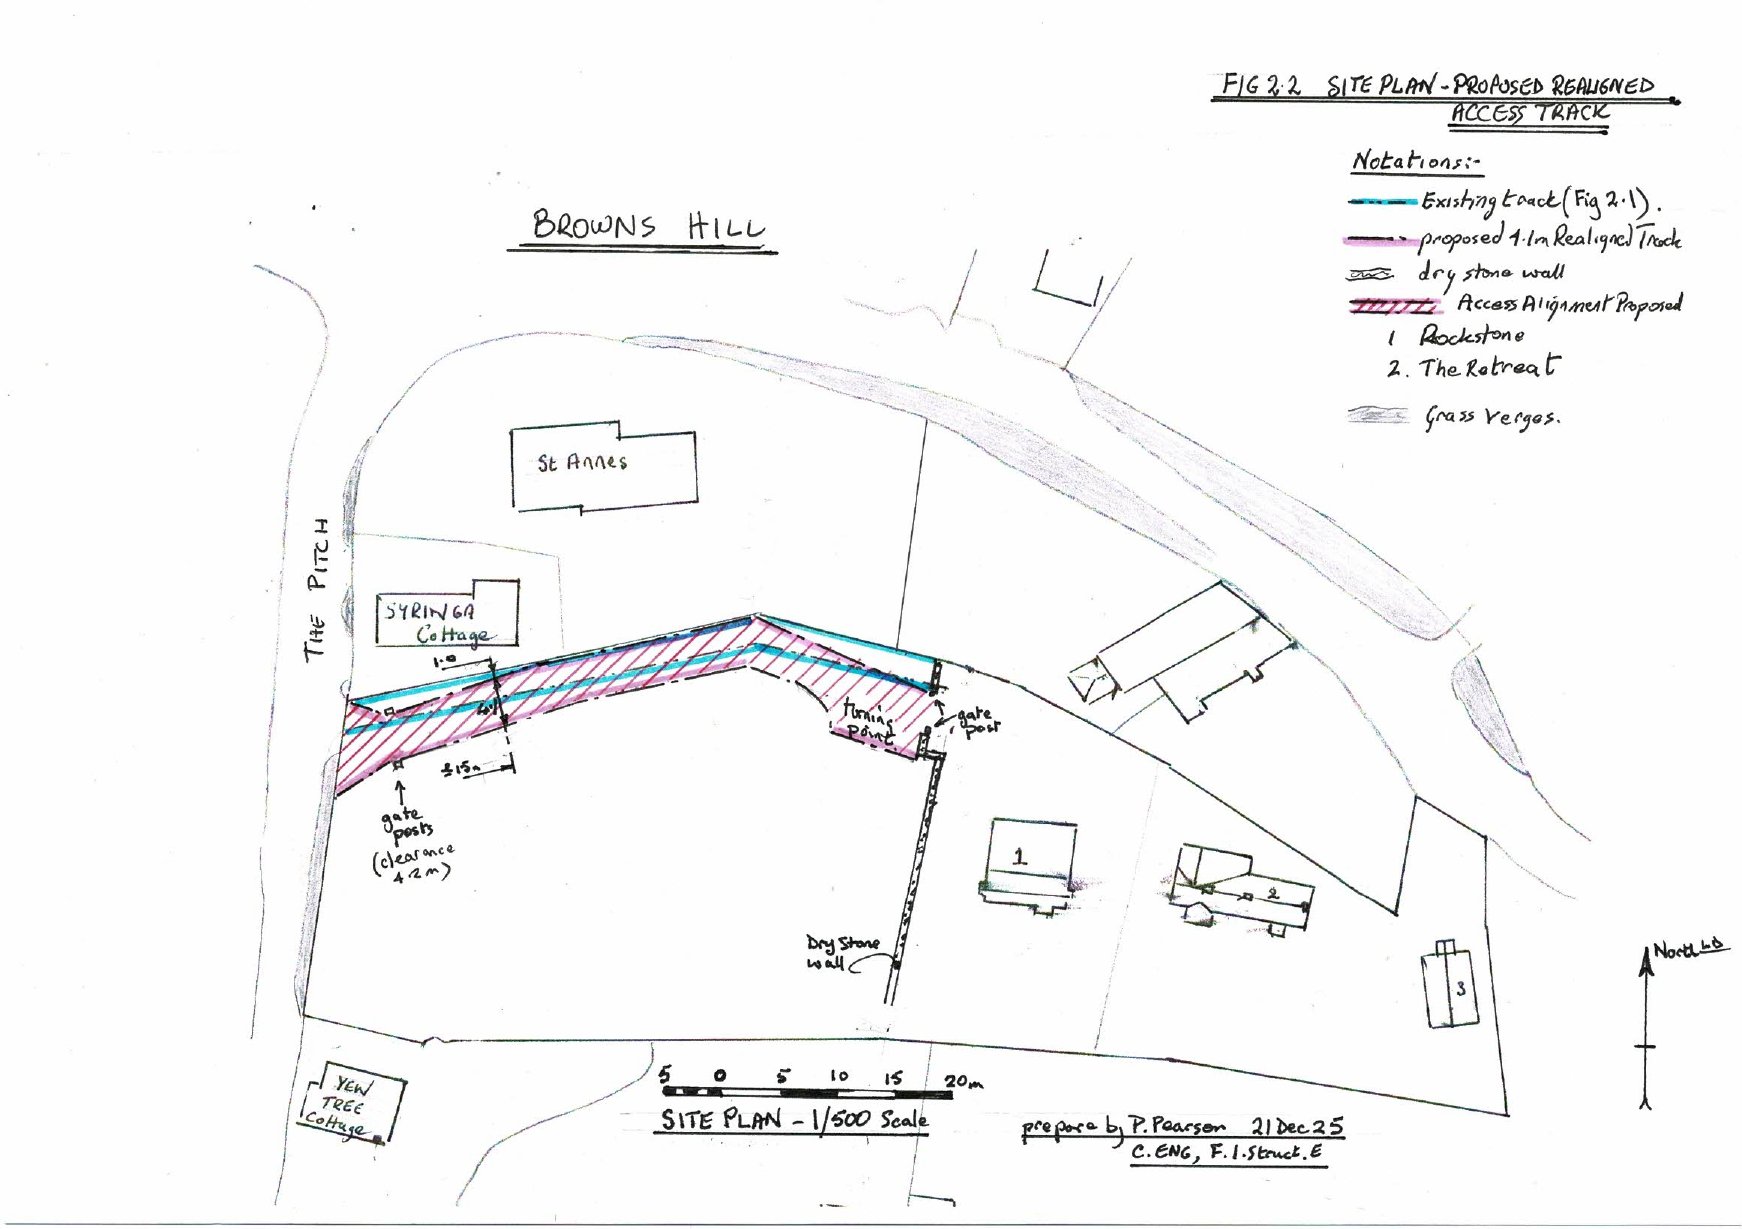 FIG 2.2 SITE PLAN - PROPOSED REALIGNED
ACCESS TRACK
Notations:-
Existing track (Fig 2.1).
proposed 4.1m Realigned Track
dry stone wall
Access Alignment Proposed
1 Rockstone
2. The Retreat
Grass Verges.
BROWNS HILL
St Annes
THE PITCH
SYRINGA
Cottage
1.0
±15m
turning
point
gate
post
gate
posts
(clearance
4.2m)
1
2
3
Dry Stone
wall
North
YEW
TREE
Cottage
5 0 5 10 15 20m
SITE PLAN - 1/500 Scale
prepare by P. Pearson 21 Dec 25
C. ENG, F.I.Struct.E